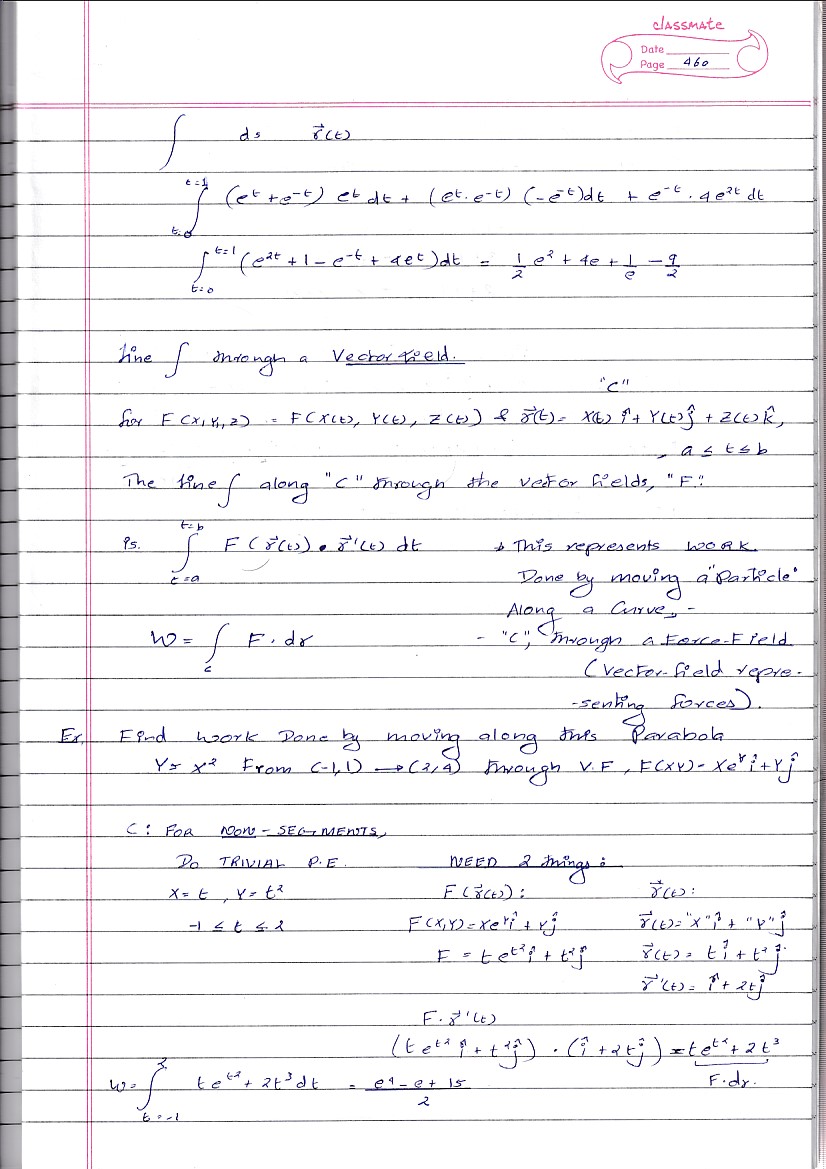 classmate
Date
Page 460
∫ ds r⃗(t)
∫ₜ₌₀ᵗ⁼¹ (eᵗ + e⁻ᵗ) eᵗ dt + (eᵗ·e⁻ᵗ) (-e⁻ᵗ)dt + e⁻ᵗ · 4e²ᵗ dt
∫ₜ₌₀ᵗ⁼¹ (e²ᵗ + 1 - e⁻ᵗ + 4eᵗ)dt = 1/2 e² + 4e + 1/e - 9/2
line ∫ through a Vector field.
"C"
for F(X,Y,Z) = F(X(t), Y(t), Z(t)) & r⃗(t) = X(t) î + Y(t) ĵ + Z(t) k̂,
, a ≤ t ≤ b
The line ∫ along "C" through the vector fields, "F".
is. ∫ₜ₌ₐᵗ⁼ᵇ F(r⃗(t)) • r⃗'(t) dt → This represents WORK.
Done by moving a "Particle"
Along a Curve, -
W = ∫_c F·dr - "C", through a Force-Field
(Vector-field repre-
-senting forces).
Ex. Find work Done by moving along this Parabola
Y = X² From (-1,1) → (2,4) through V.F, F(XY) = Xeʸ î + Y ĵ
C: FOR NON-SEGMENTS,
DO TRIVIAL P.E. NEED 2 things:
X = t , Y = t² F(r⃗(t)): r⃗(t):
-1 ≤ t ≤ 2 F(X,Y) = Xeʸ î + Y ĵ r⃗(t) = "X" î + "Y" ĵ
F = t e^(t²) î + t² ĵ r⃗(t) = t î + t² ĵ
r⃗'(t) = î + 2t ĵ
F · r⃗'(t)
(t e^(t²) î + t² ĵ) · (î + 2t ĵ) = t e^(t²) + 2t³
W = ∫ₜ₌₋₁² t e^(t²) + 2t³ dt = (e⁴ - e + 15)/2 F·dr.